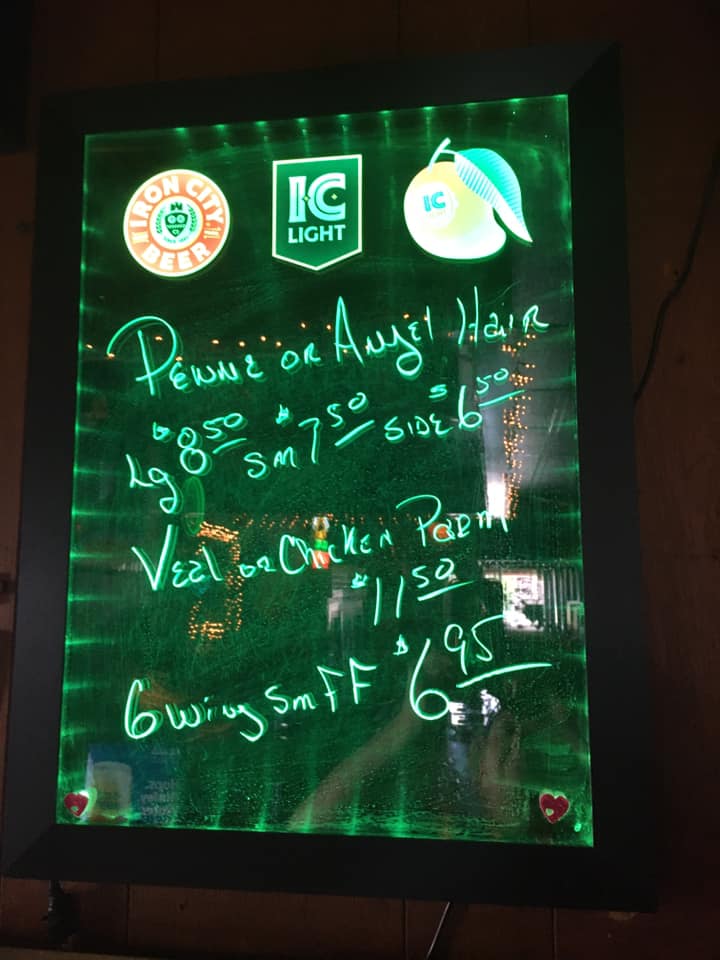 IRON CITY
BEER
IC
LIGHT
IC
PENNE OR ANGEL HAIR
Lg $8.50 SM $7.50 SIDE $6.50
VEAL OR CHICKEN PARM
$11.50
6 wing Sm FF $6.95